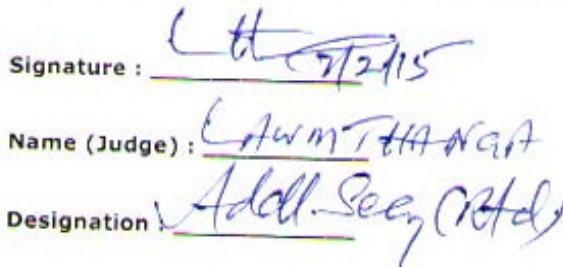 Signature : 2/2/15
Name (Judge) : LAWMTHANGA
Designation : Addl. Secy (Rtd)